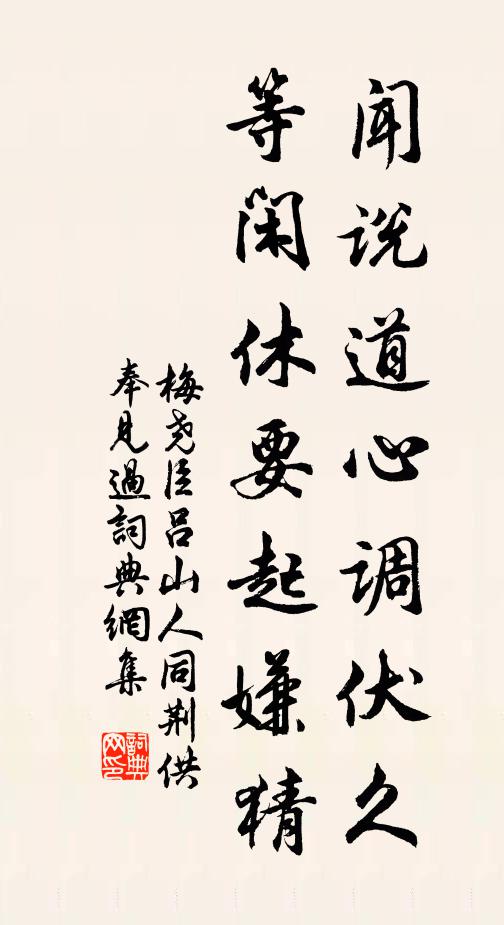 闻说道心调伏久
等闲休要起嫌猜
梅尧臣吕山人同荆供
奉见過詞典網集
詞典網印